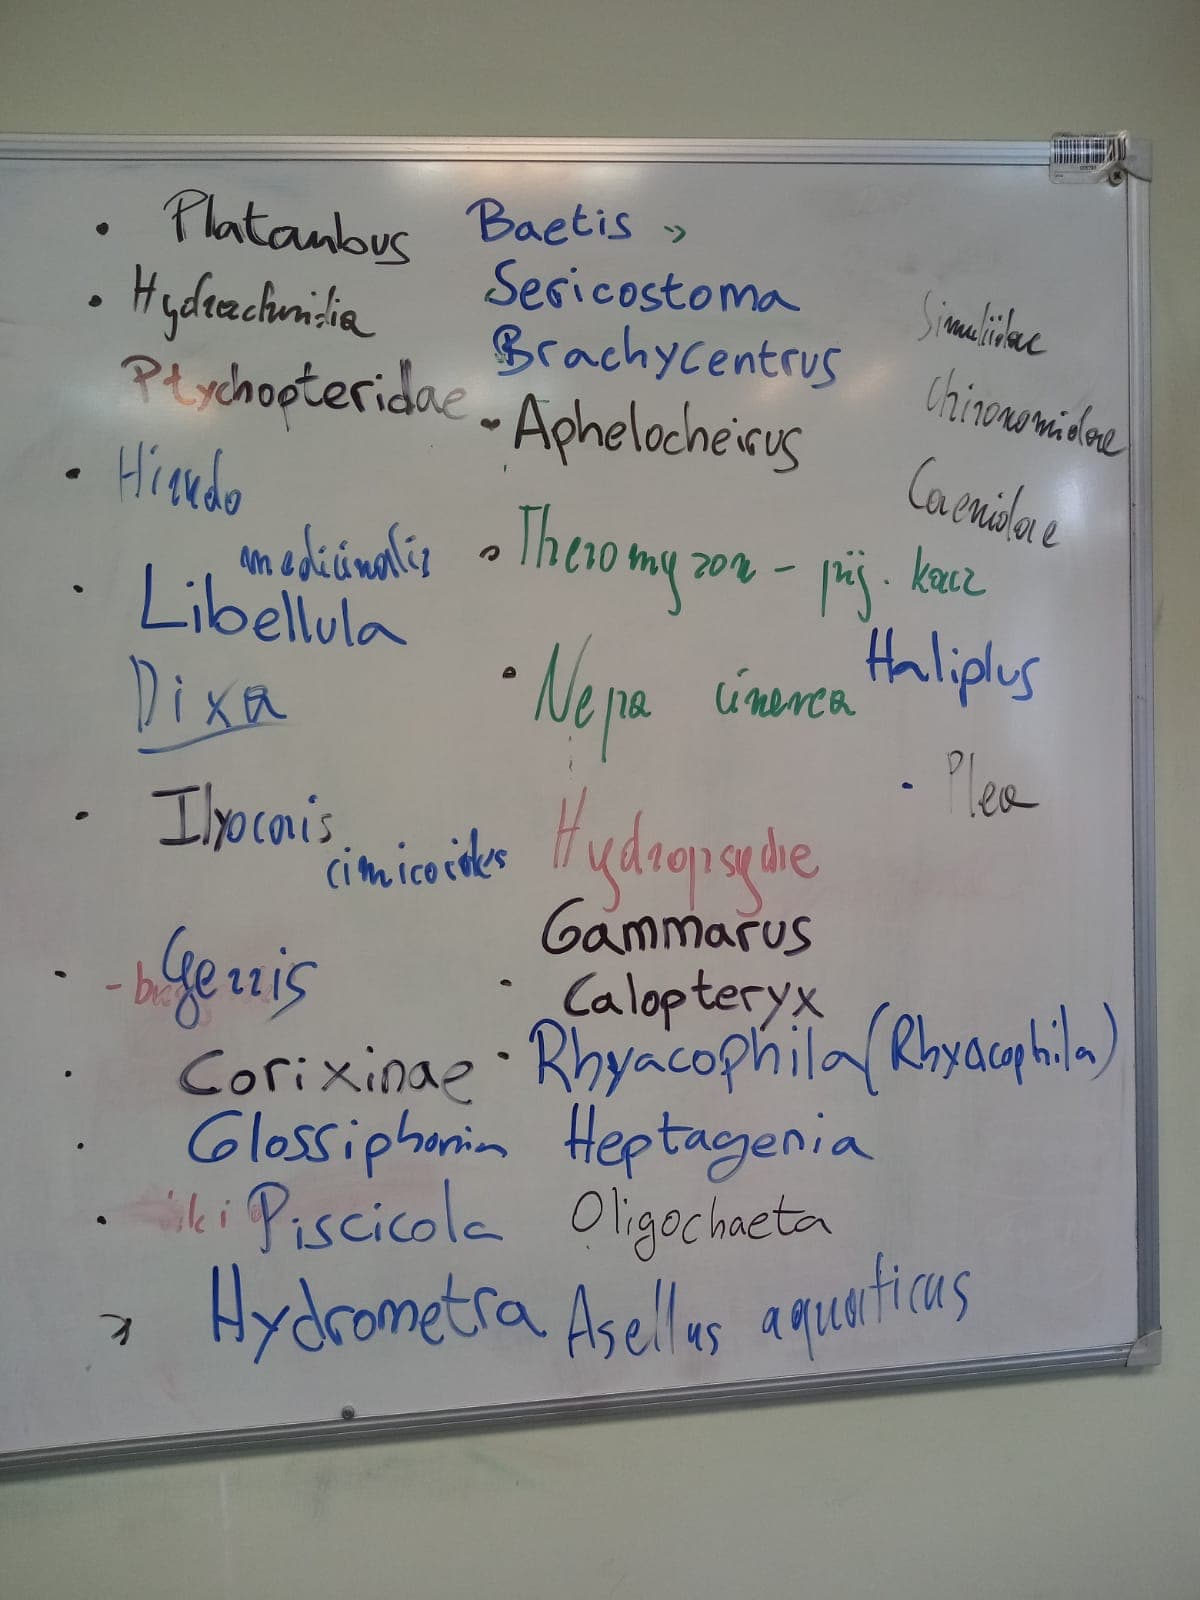 • Platambus
• Hydrachnidia
Ptychopteridae
• Hirudo
medicinalis
• Libellula
Dixa
• Ilyocoris
cimicoides
• Gerris
• Corixinae
• Glossiphonia
• Piscicola
Hydrometra
Baetis
Sericostoma
Brachycentrus
- Aphelocheirus
• Theromyzon - pij. kacz
• Nepa cinerea
Hydropsyche
Gammarus
• Calopteryx
• Rhyacophila (Rhyacophila)
Heptagenia
Oligochaeta
Asellus aquaticus
Simuliidae
Chironomidae
Caenidae
Haliplus
• Plea